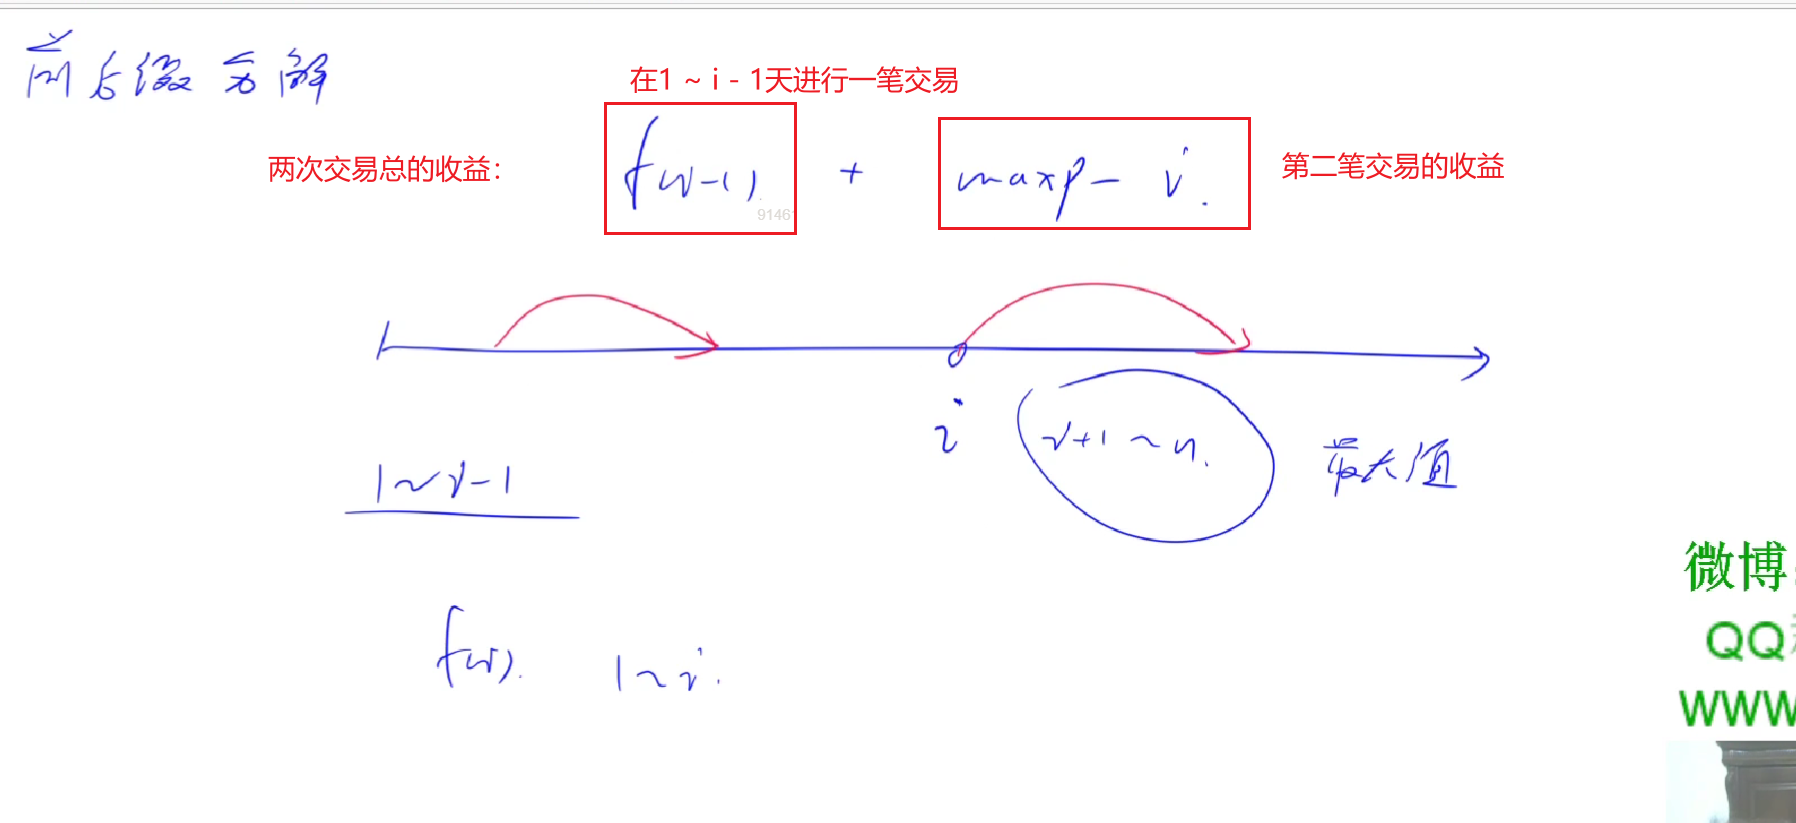 前后缀分解
在1 ~ i - 1天进行一笔交易
两次交易总的收益：
f(i-1) + maxp - i
第二笔交易的收益
9146
i
i+1 ~ n.
最大值
1 ~ i-1
f(i). 1 ~ i.
微博:
QQ
www